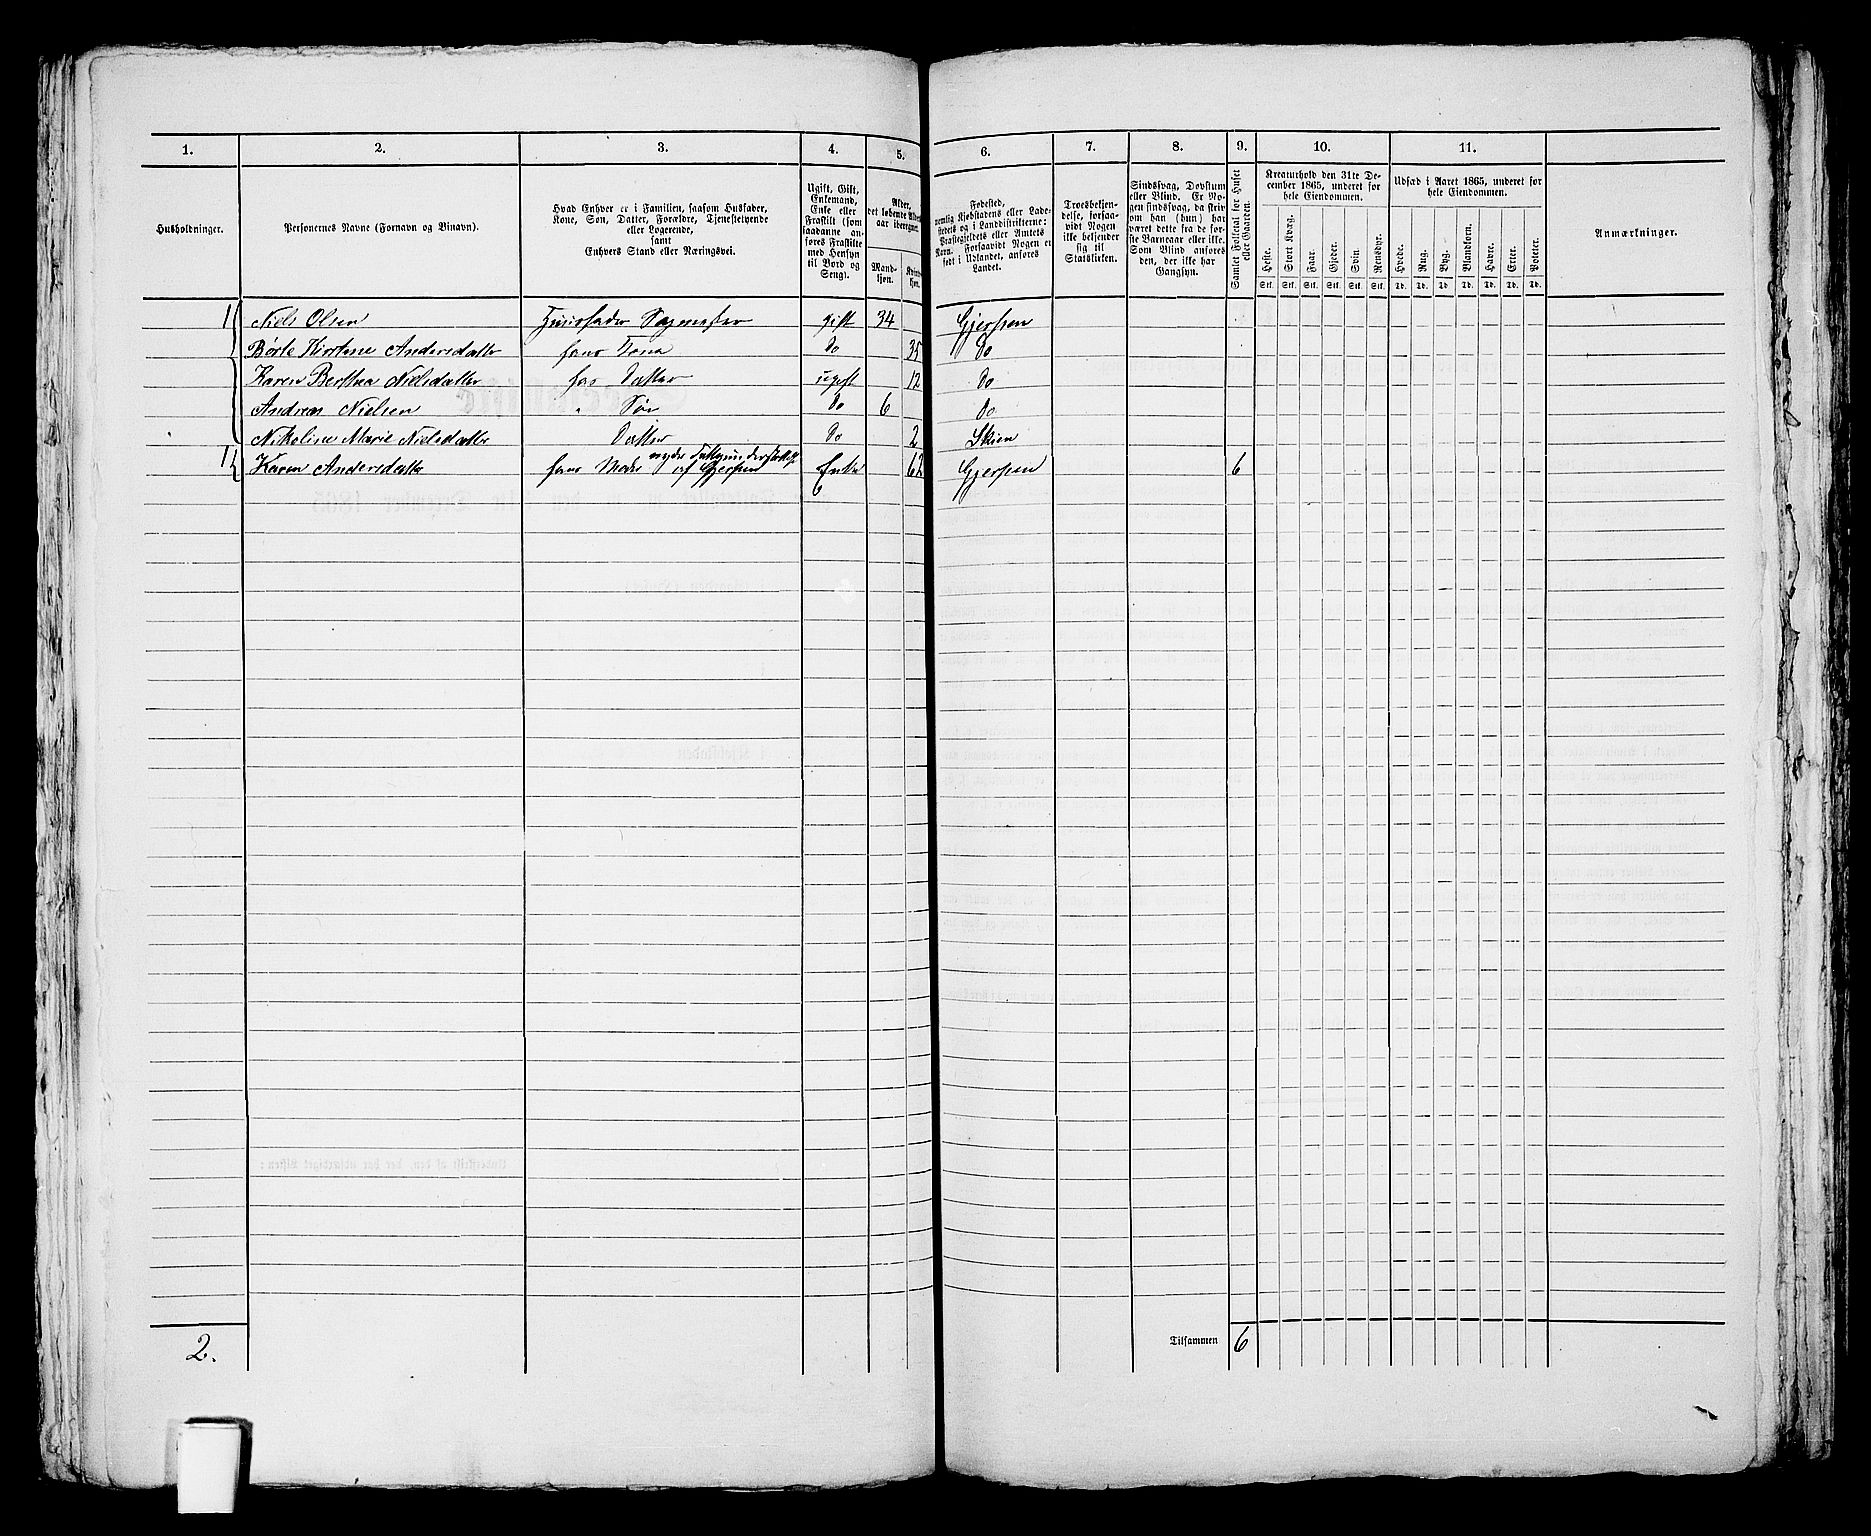 1. 2. 3. 4. 5. 6. 7. 8. 9. 10. 11.
Husholdninger.
Personernes Navne (Fornavn og Binavn).
Hvad Enhver er i Familien, saasom Husfader,
Kone, Søn, Datter, Forældre, Tjenestetyende
eller Logerende,
samt
Enhvers Stand eller Næringsvei.
Ugift, Gift,
Enkemand,
Enke eller
Fraskilt (som
saadanne an-
føres Fraskilte
med Hensyn
til Bord og
Seng).
Alder,
det løbende Alders-
aar iberegnet.
Mand-
kjøn.
Kvinde-
kjøn.
Fødested,
nemlig Kjøbstadens eller Lade-
stedets og i Landdistrikterne:
Præstegjeldets eller Amtets
Navn. Forsaavidt Nogen er
født i Udlandet, anføres
Landet.
Troesbekjen-
delse, forsaa-
vidt Nogen
ikke bekjender
sig til
Statskirken.
Sindssvag, Døvstum
eller Blind. Er No-
gen sindssvag, da skriv
om han (hun) har
været dette fra de før-
ste Barneaar eller ikke.
Som Blind anføres
den, der ikke har
Gangsyn.
Samlet Folketal for Huset
eller Gaarden.
Kreaturhold den 31te De-
cember 1865, underet for
hele Eiendommen.
Heste. Stort Kvæg. Faar. Gjeder. Svin. Rensdyr.
Stk. Stk. Stk. Stk. Stk. Stk.
Udsæd i Aaret 1865, underet for
hele Eiendommen.
Hvede. Rug. Byg. Blandkorn. Havre. Erter. Poteter.
Td. Td. Td. Td. Td. Td. Td.
Anmærkninger.
1 Niels Olsen Huusfader Sagmester gift 34 Gjerpen
Børte Kirstine Andersdatter hans Kona Do 35 Do
Karen Berthea Nielsdatter hs Datter ugift 12 Do
Andreas Nielsen " Søn Do 6 Do
Nikoline Marie Nielsdatter Datter Do 2 Skien
1 Karen Andersdatter hans Moder nyder Fattigunderstøttelse af Gjerpen Enke 62 Gjerpen 6
2. Tilsammen 6